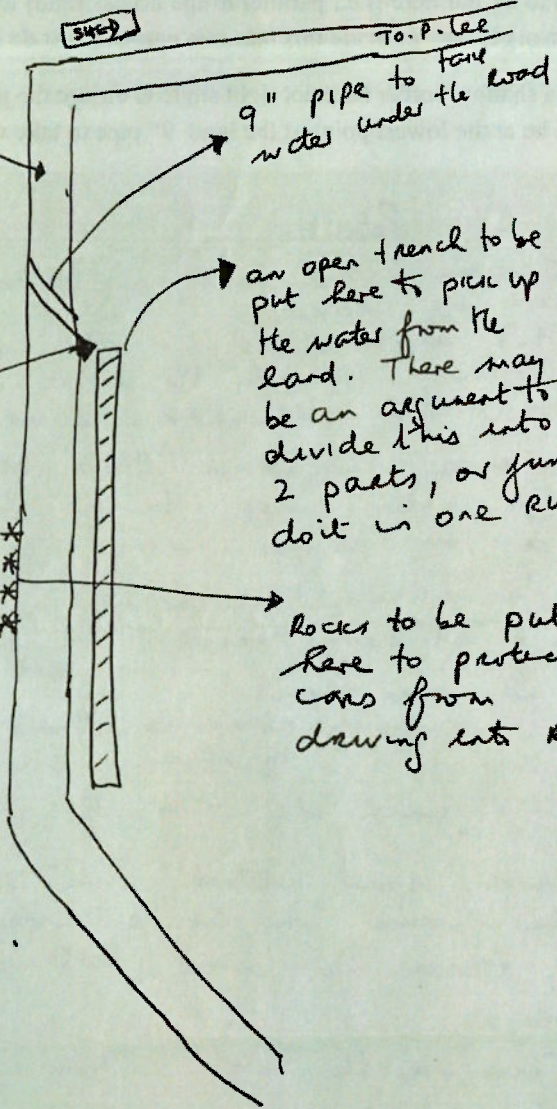 SHED
TO. P. Lee
9" pipe to take
water under the road
an open trench to be
put here to pick up
the water from the
land. There may
be an argument to
divide this into
2 parts, or
do it in one
Rocks to be put
here to protec
cars from
driving into